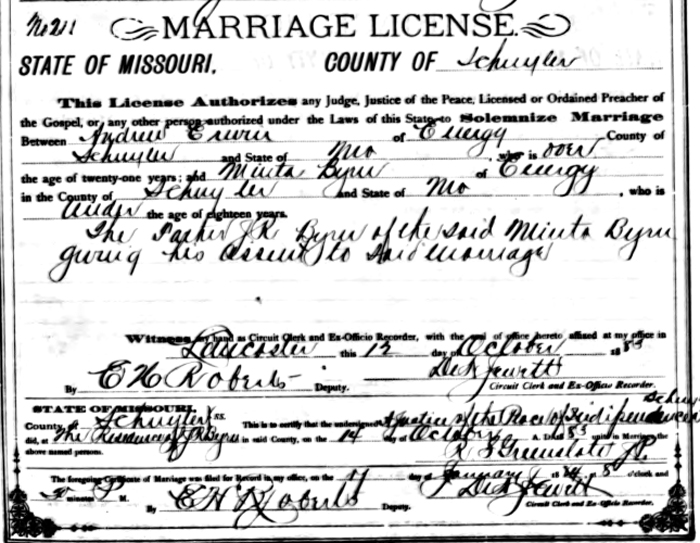 No 211
MARRIAGE LICENSE.
STATE OF MISSOURI, COUNTY OF Schuyler
This License Authorizes any Judge, Justice of the Peace, Licensed or Ordained Preacher of
the Gospel, or any other person authorized under the Laws of this State to Solemnize Marriage
Between Andrew Erwin of Energy County of
Schuyler and State of Mo, who is over
the age of twenty-one years; and Minta Byrn of Energy
in the County of Schuyler and State of Mo, who is
under the age of eighteen years.
The Father J. R. Byrn of the said Minta Byrn
giving his assent to said marriage
Witness my hand as Circuit Clerk and Ex-Officio Recorder, with the seal of office hereto affixed at my office in
Lancaster this 12 day of October 1883
By E H Roberts Deputy. Circuit Clerk and Ex-Officio Recorder.
STATE OF MISSOURI, ss.
County of Schuyler This is to certify that the undersigned Justice of the Peace of Independence
did, at The Residence of J R Byrn in said County, on the 14 of October A. D. 1883 unite in Marriage the
above named persons. J.P.
The foregoing Certificate of Marriage was filed for Record in my office, on the day of January o'clock and
minutes P M. E H Roberts Deputy. Circuit Clerk and Ex-Officio Recorder.